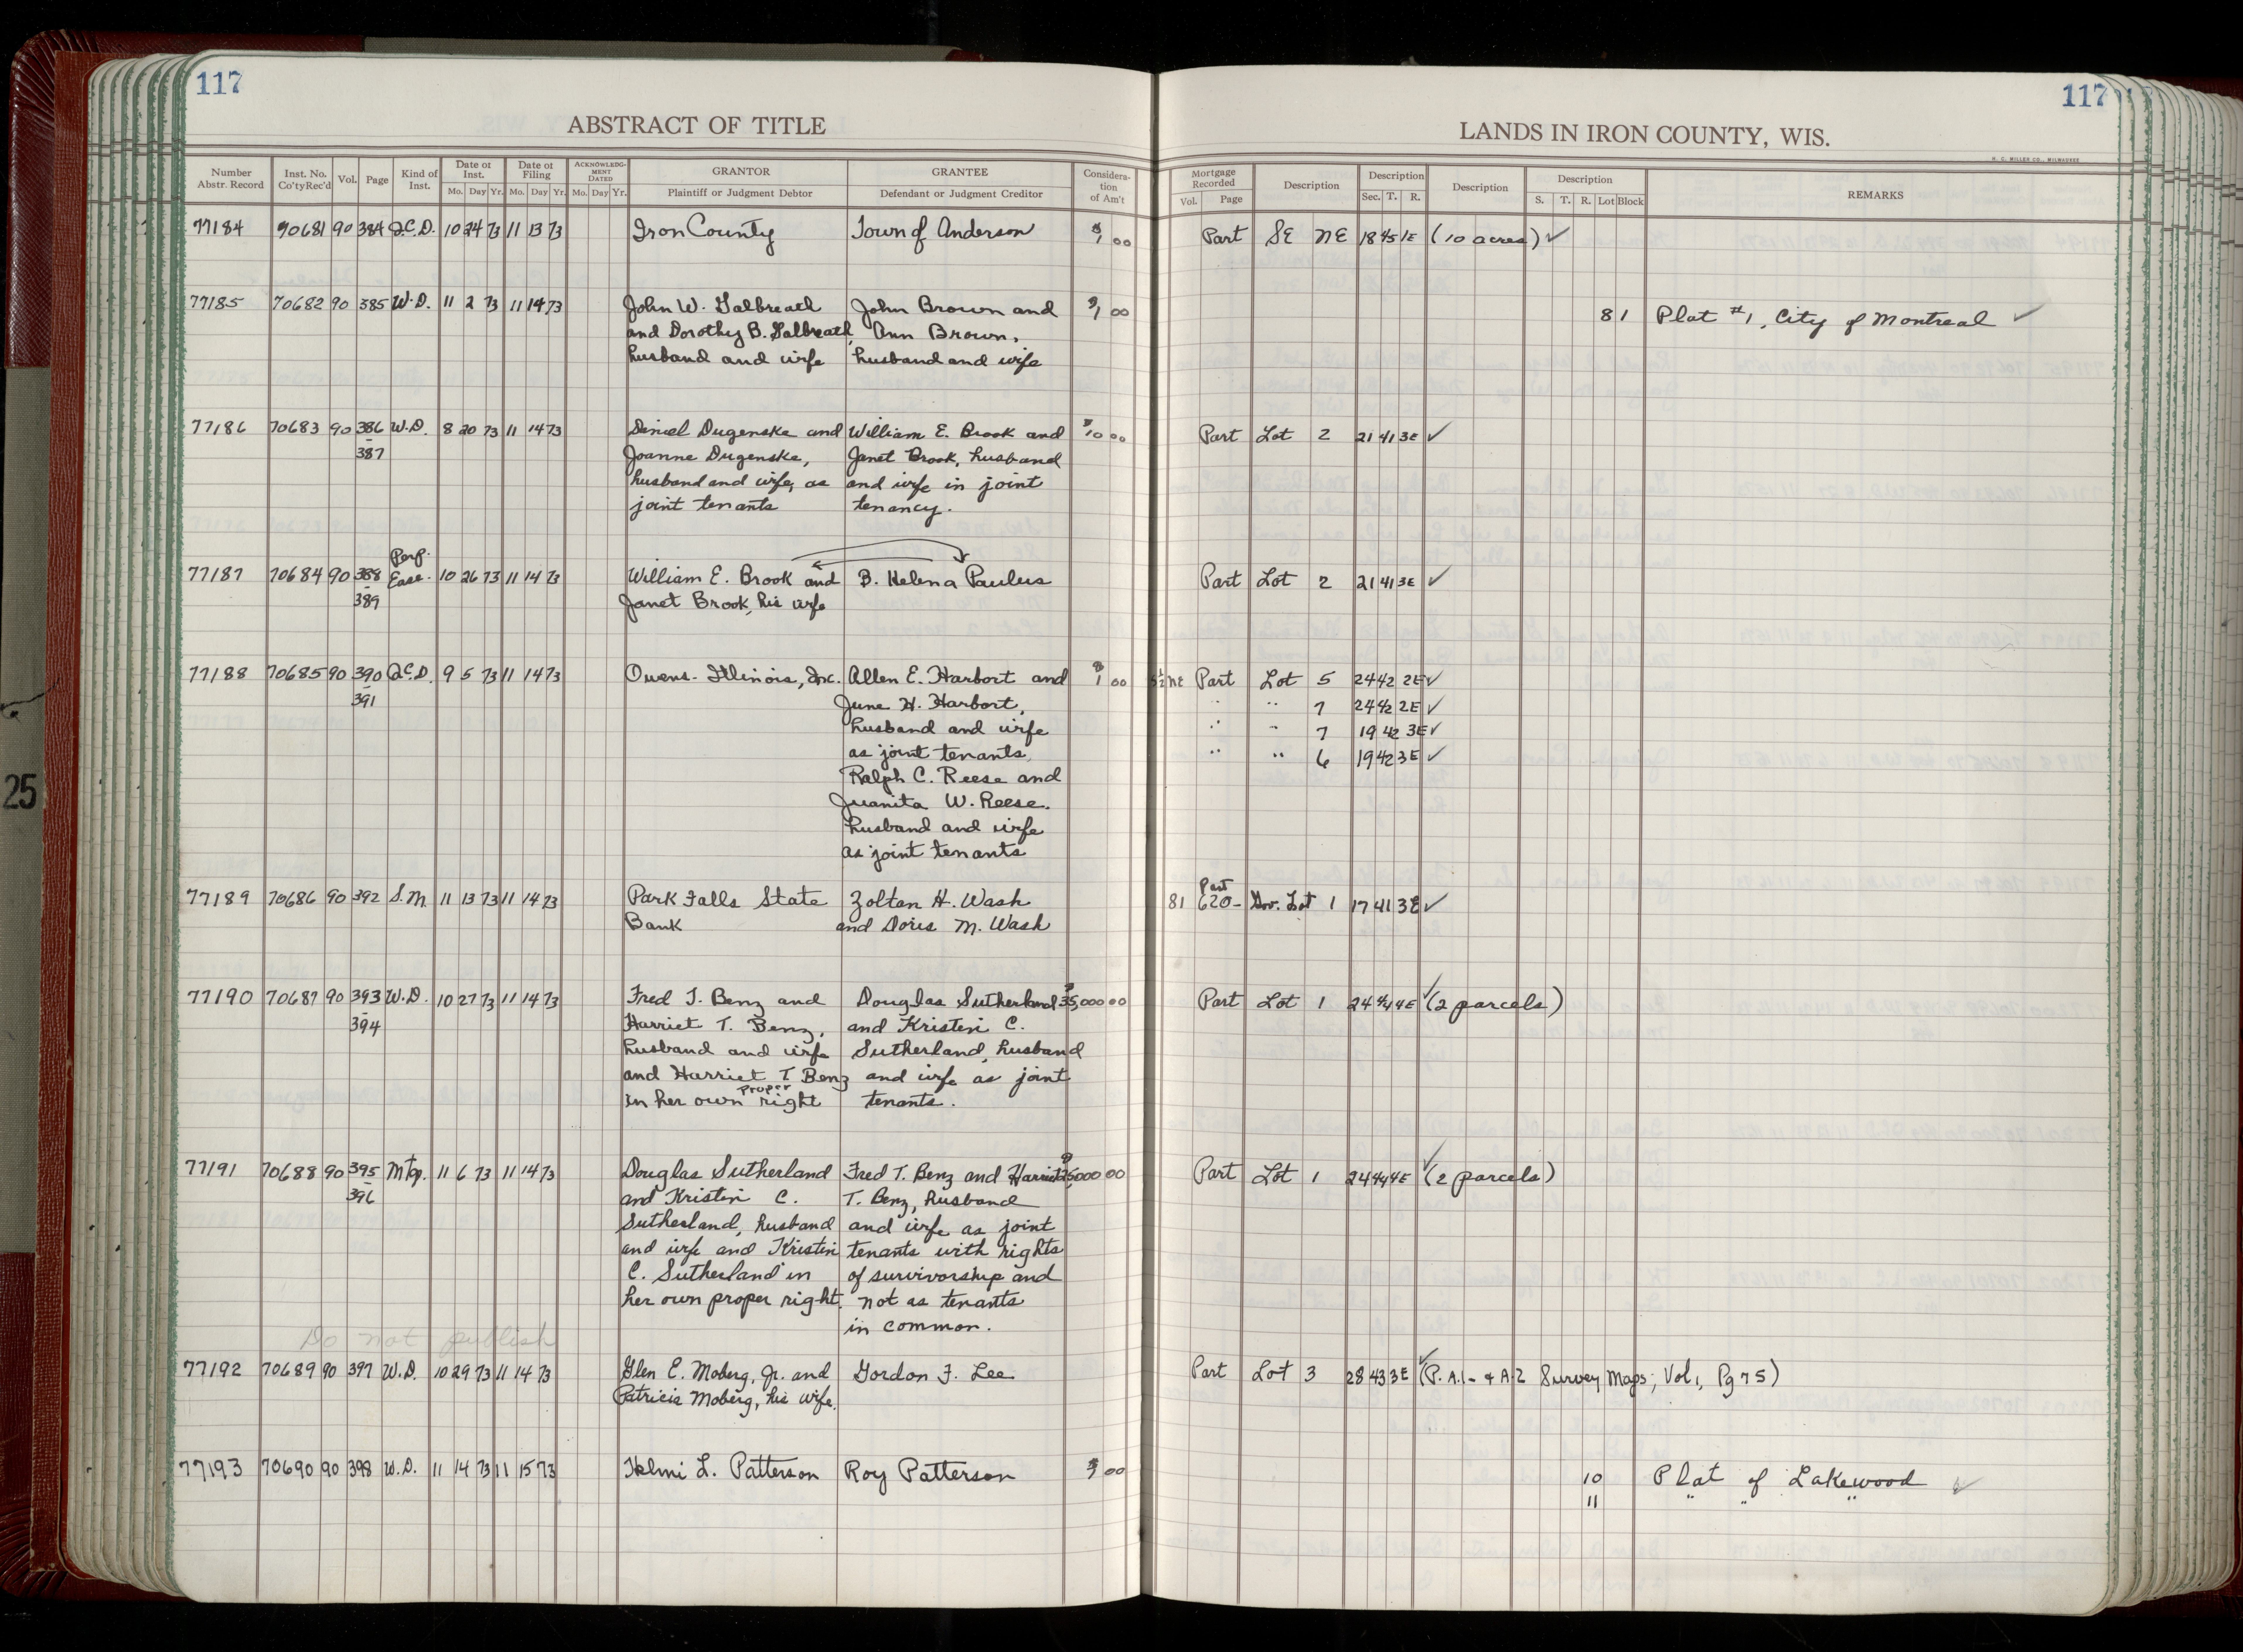 117
117
ABSTRACT OF TITLE
LANDS IN IRON COUNTY, WIS.
H. C. MILLER CO., MILWAUKEE
Number Abstr. Record
Inst. No. Co'ty Rec'd
Vol.
Page
Kind of Inst.
Date of Inst. Mo. Day Yr.
Date of Filing Mo. Day Yr.
ACKNOWLEDGMENT DATED Mo. Day Yr.
GRANTOR Plaintiff or Judgment Debtor
GRANTEE Defendant or Judgment Creditor
Consideration of Am't
Mortgage Recorded Vol. Page
Description
Description Sec. T. R.
Description
Description S. T. R. Lot Block
REMARKS
77184 70681 90 384 Q.C.D. 10 24 73 11 13 73 Iron County Town of Anderson $1 00 Part SE NE 18 45 1E (10 acres) ✓
77185 70682 90 385 W.D. 11 2 73 11 14 73 John W. Galbreath John Brown and $1 00 81 Plat #1, City of Montreal ✓
and Dorothy B. Galbreath, Ann Brown,
husband and wife husband and wife
77186 70683 90 386 W.D. 8 20 73 11 14 73 Daniel Dugenske and William E. Brook and $10 00 Part Lot 2 21 41 3E ✓
- 387 Joanne Dugenske, Janet Brook, husband
husband and wife, as and wife in joint
joint tenants tenancy.
Perp.
77187 70684 90 388 Ease. 10 26 73 11 14 73 William E. Brook and B. Helena Paulus Part Lot 2 21 41 3E ✓
- 389 Janet Brook, his wife
77188 70685 90 390 Q.C.D. 9 5 73 11 14 73 Owens-Illinois, Inc. Allen E. Harbort and $1 00 S½ NE Part Lot 5 24 42 2E ✓
- 391 June H. Harbort, " " 7 24 42 2E ✓
husband and wife " " 7 19 42 3E ✓
as joint tenants, " " 6 19 42 3E ✓
Ralph C. Reese and
Juanita W. Reese.
husband and wife
as joint tenants
Part
77189 70686 90 392 S.M. 11 13 73 11 14 73 Park Falls State Zoltan H. Wash 81 620- Gov. Lot 1 17 41 3E ✓
Bank and Doris M. Wash
77190 70687 90 393 W.D. 10 27 73 11 14 73 Fred T. Benz and Douglas Sutherland $35,000 00 Part Lot 1 24 44 4E ✓ (2 parcels)
- 394 Harriet T. Benz, and Kristin C.
husband and wife Sutherland, husband
and Harriet T. Benz and wife as joint
in her own proper right tenants.
77191 70688 90 395 Mtg. 11 6 73 11 14 73 Douglas Sutherland Fred T. Benz and Harriet $25,000 00 Part Lot 1 24 44 4E ✓ (2 parcels)
- 396 and Kristin C. T. Benz, husband
Sutherland, husband and wife as joint
and wife and Kristin tenants with rights
C. Sutherland in of survivorship and
her own proper right. not as tenants
in common.
Do not publish
77192 70689 90 397 W.D. 10 29 73 11 14 73 Glen E. Moberg, Jr. and Gordon F. Lee Part Lot 3 28 43 3E ✓ (P. A.1- & A-2 Survey Maps; Vol 1, Pg 75)
Patricia Moberg, his wife.
77193 70690 90 398 W.D. 11 14 73 11 15 73 Helmi L. Patterson Roy Patterson $1 00 10 Plat of Lakewood ✓
11 " " "
25